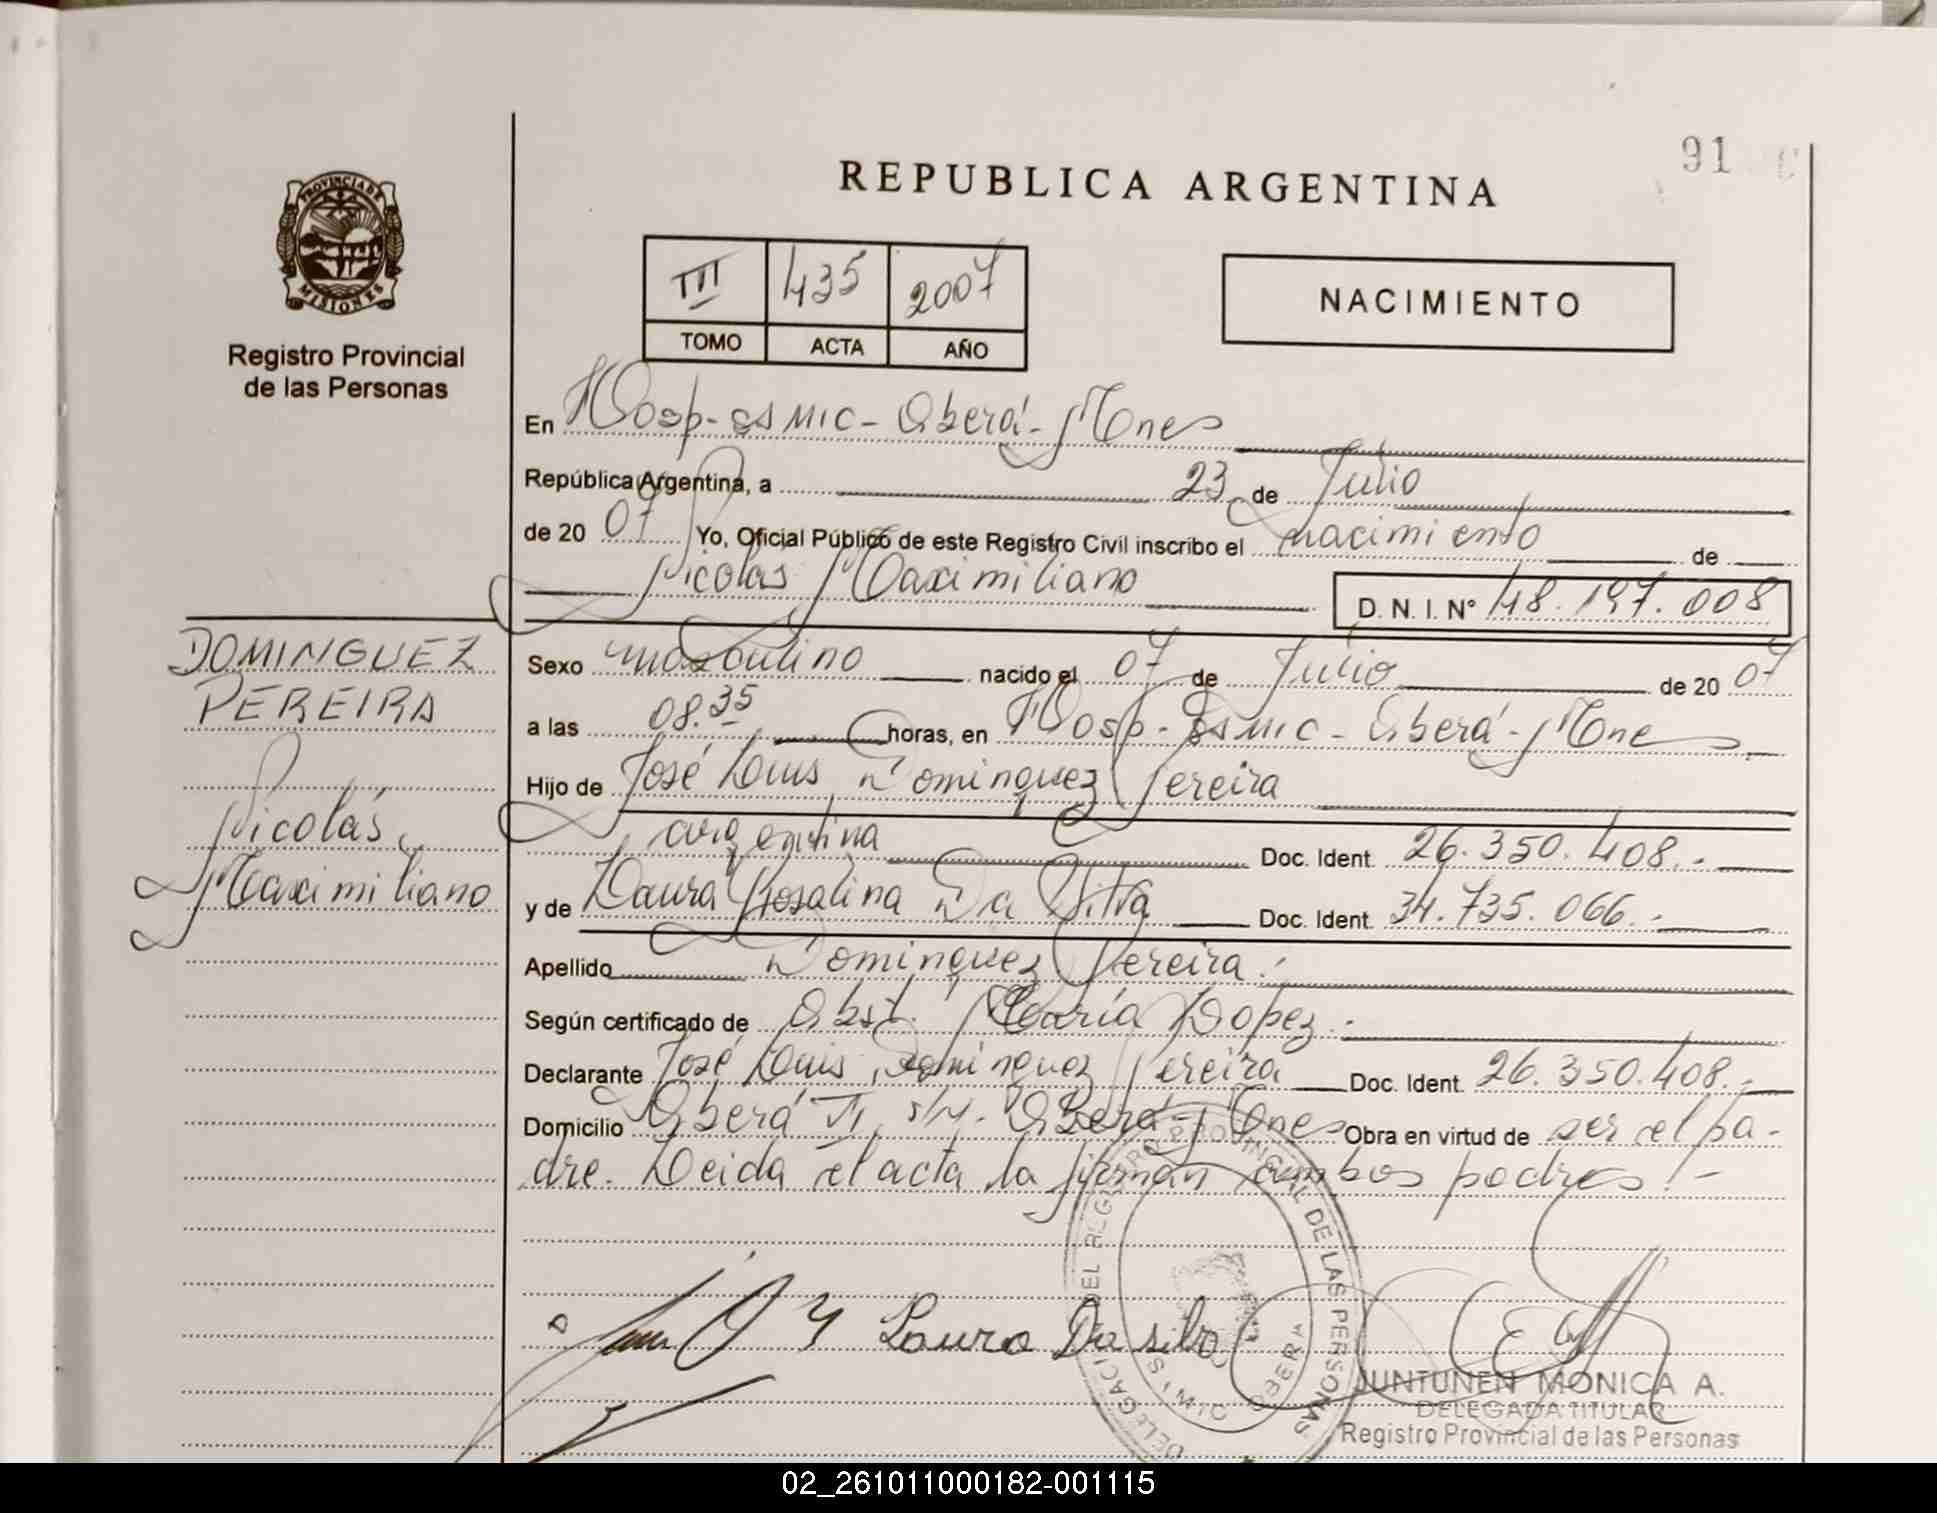 91
REPUBLICA ARGENTINA
PROVINCIA DE MISIONES
Registro Provincial
de las Personas
III 435 2007
TOMO ACTA AÑO
NACIMIENTO
En Hosp-SAMIC-Oberá-Mnes
República Argentina, a 23 de Julio
de 20 07 Yo, Oficial Público de este Registro Civil inscribo el nacimiento de
Nicolás Maximiliano D. N. I. Nº 48.197.008
DOMINGUEZ
PEREIRA
Nicolás
Maximiliano
Sexo masculino nacido el 07 de Julio de 20 07
a las 08.35 horas, en Hosp-SAMIC-Oberá-Mnes
Hijo de José Luis Dominguez Pereira
argentina Doc. Ident. 26.350.408.-
y de Laura Rosalina Da Silva Doc. Ident. 34.735.066.-
Apellido Dominguez Pereira.-
Según certificado de Obst. María Lopez.-
Declarante José Luis Dominguez Pereira Doc. Ident. 26.350.408.-
Domicilio Oberá VI s/n. Oberá-Mnes Obra en virtud de ser el pa-
dre. Leida el acta la firman ambos padres.-
Laura Da silva
DEL REGISTRO PROVINCIAL DE LAS PERSONAS
OBERA
JUNTUNEN MONICA A.
DELEGADA TITULAR
Registro Provincial de las Personas
02_261011000182-001115